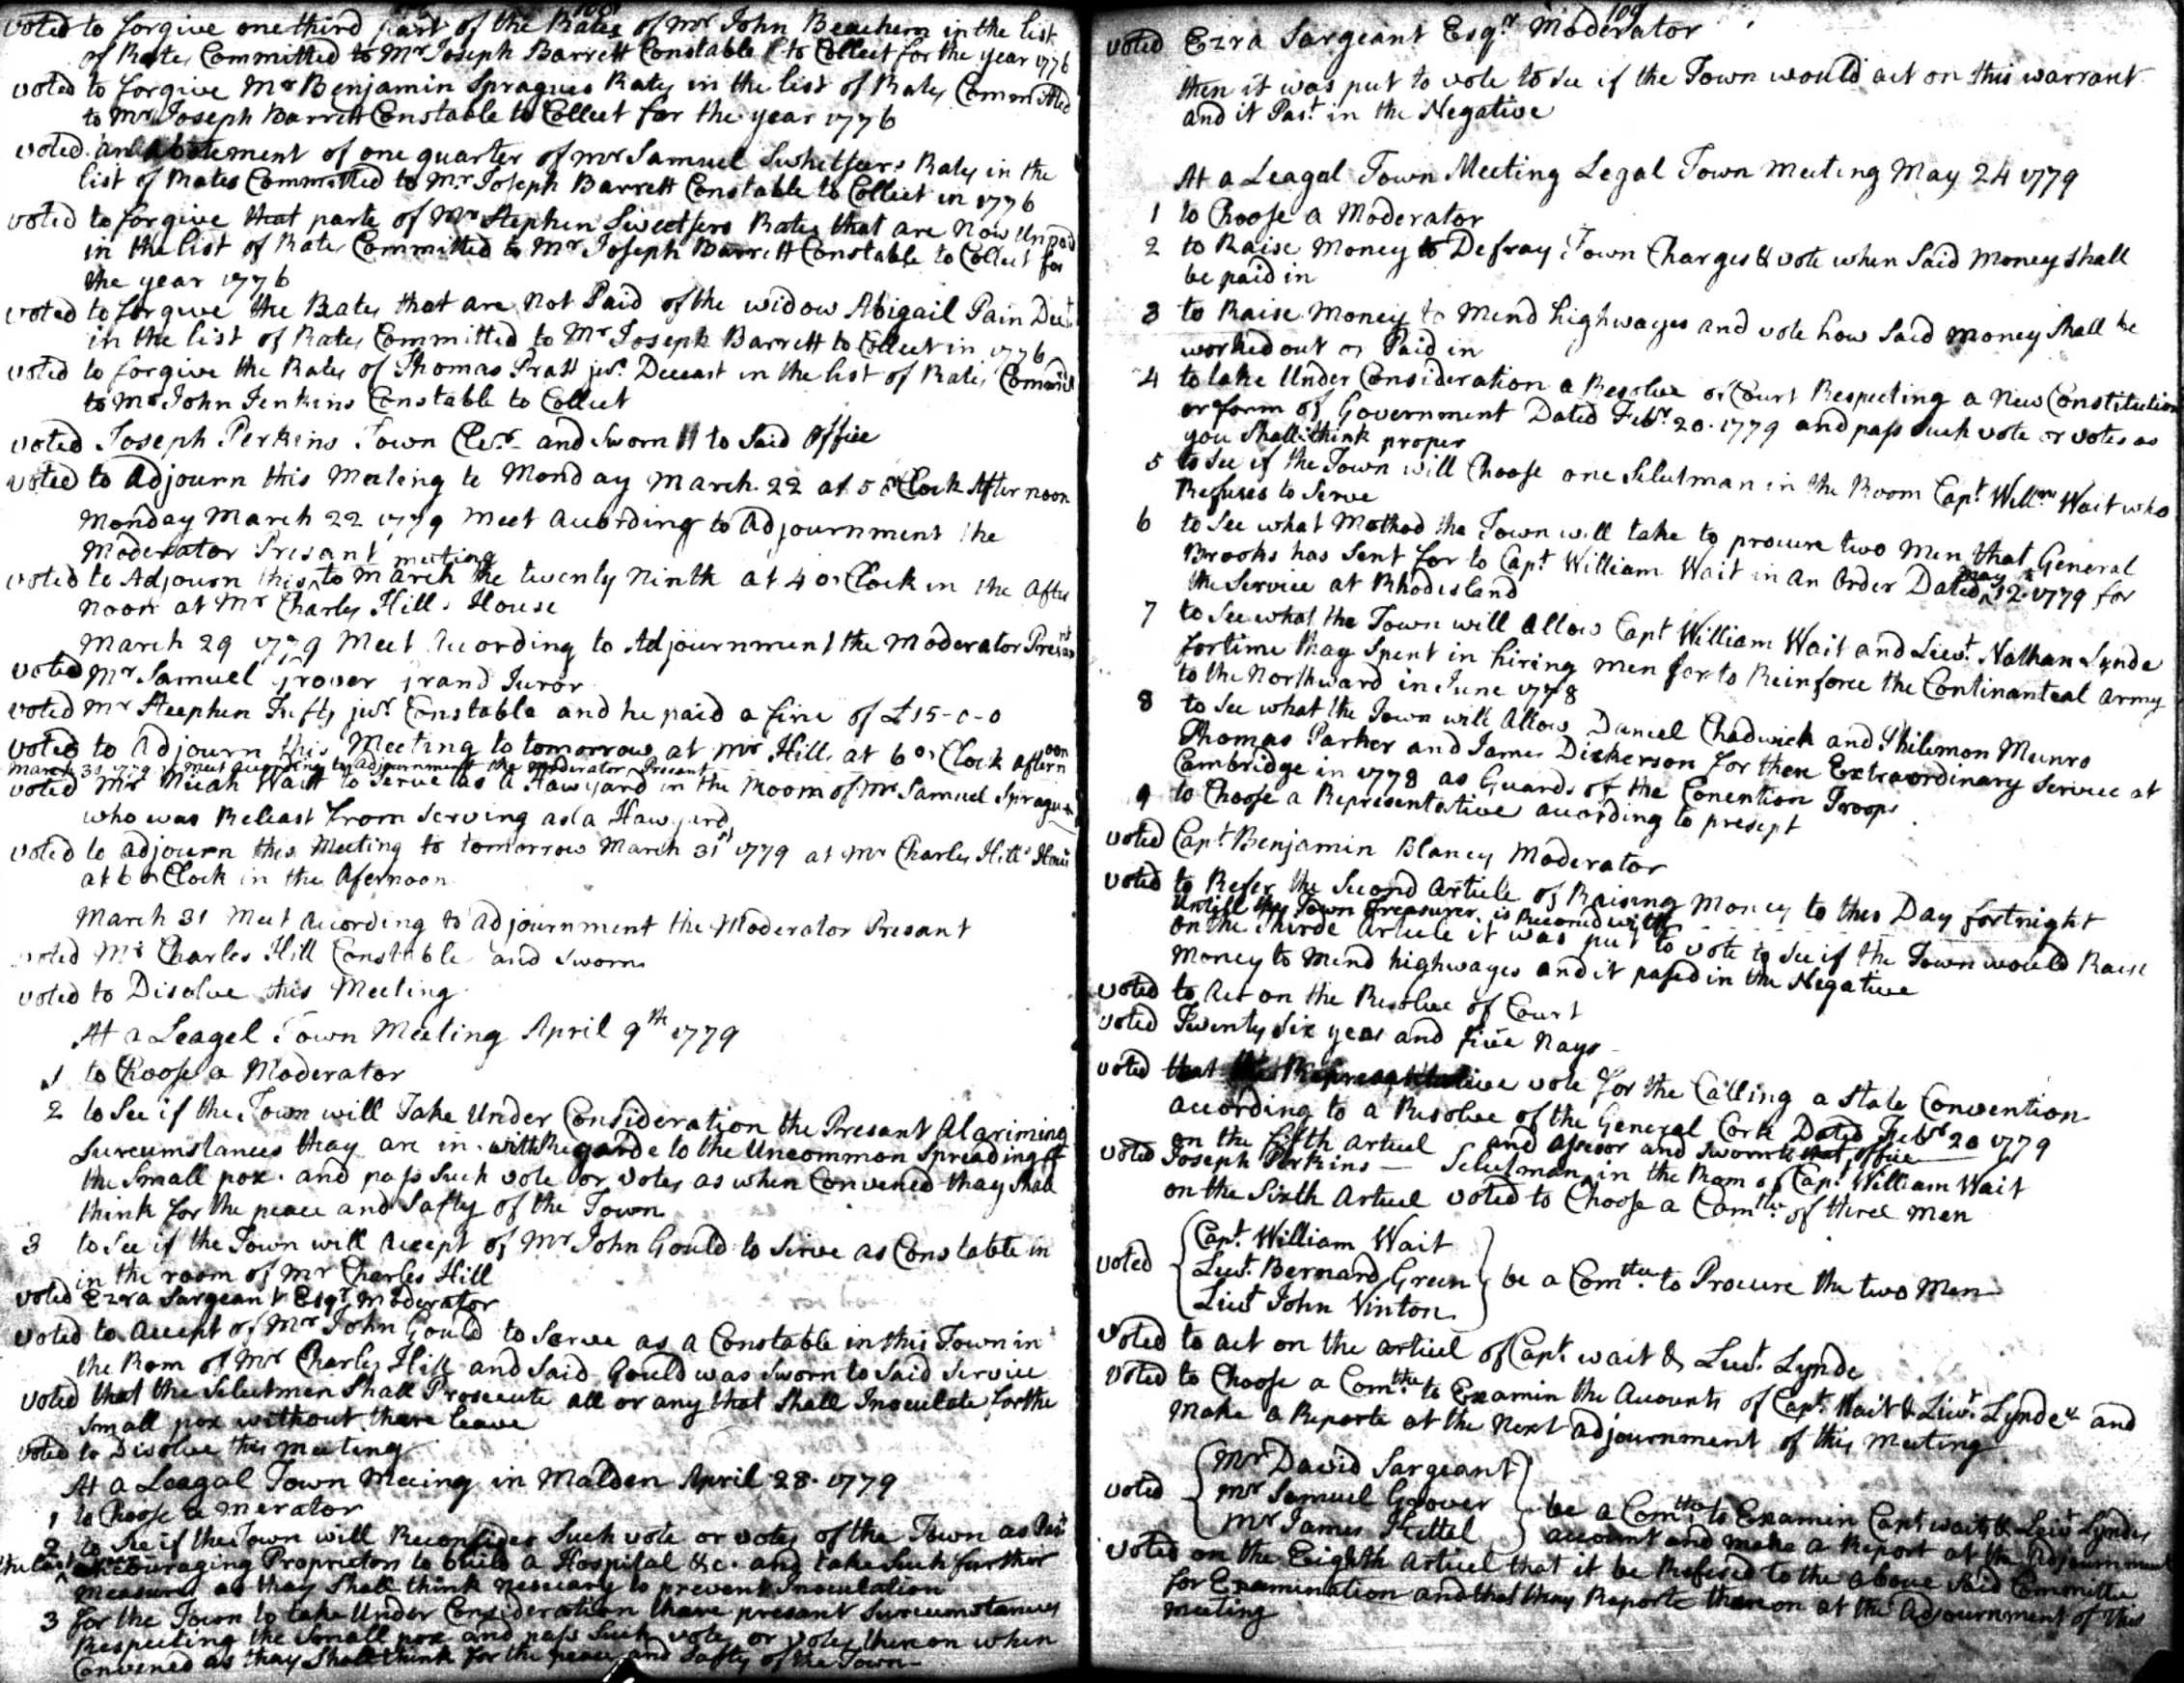 voted to forgive one third part of the Rates of Mr John Beachem in the list
of Rates Committed to Mr Joseph Barrett Constable to Collect for the year 1776
voted to forgive Mr Benjamin Spragues Rates in the list of Rates Committed
to Mr Joseph Barrett Constable to Collect for the year 1776
voted an abatement of one quarter of mr Samuel Swhetsers Rates in the
list of Rates Committed to Mr Joseph Barrett Constable to Collect in 1776
voted to forgive that parte of Mr Stephen Sweetsers Rates that are Now Unpaid
in the list of Rates Committed to Mr Joseph Barrett Constable to Collect for
the year 1776
voted to forgive the Rates that are Not Paid of the widow Abigail Pain Dect
in the list of Rates Committed to Mr Joseph Barrett to Collect in 1776
voted to forgive the Rates of Thomas Pratt jur Deceast in the list of Rates
to Mr John Jenkins Constable to Collect
voted Joseph Perkins Town Cler and Sworn to Said Office
voted to Adjourn this Meeting to Monday March 22 at 5 o Clock Afternoon
Monday March 22 1779 Meet Acording to Adjournment the
Moderator Presant
voted to Adjourn this meeting to March the twenty Ninth at 4 o Clock in the After
noon at Mr Charles Hills House
March 29 1779 Meet Acording to Adjournment the Moderator Presant
voted Mr Samuel Grover Grand Juror
voted Mr Steephen Tufts jur Constable and he paid a fine of £15-0-0
voted to Adjourn this Meeting to tomorrow at Mr Hills at 6 o Clock afternoon
March 30 1779 Meet according to adjournment the Moderator Presant
voted Mr Micah Wait to Serve as a Hawyard in the Room of Mr Samuel Sprague
who was Releast from Serving as a Hawyard
voted to adjourn this Meeting to tomorrow March 31st 1779 at Mr Charles Hills House
at 6 o Clock in the Afernoon
March 31 Meet Acording to adjournment the Moderator Presant
voted Mr Charles Hill Constable and Sworn
voted to Disolve this Meeting
At a Leagel Town Meeting April 9th 1779
1 to Choose a Moderator
2 to See if the Town will Take Under Consideration the Presant Alariming
Surcumstances thay are in with Regarde to the Uncommon Spreading of
the Small pox and pass Such vote or votes as when Convened thay Shall
think for the peace and Safty of the Town
3 to See if the Town will Accept of Mr John Gould to Serve as Constable in
in the room of Mr Charles Hill
voted Ezra Sargeant Esqr Moderator
voted to Accept of Mr John Gould to Serve as a Constable in this Town in
the Rom of Mr Charles Hill and Said Gould was Sworn to Said Service
voted that the Selectmen Shall Prosecute all or any that Shall Inoculate for the
Small pox without there leave
voted to Disolve this meeting
At a Leagal Town Meeing in Malden April 28 1779
1 to Choose a Merator
2 to See if the Town will Reconsider Such vote or votes of the Town as Past
encouraging Proprietors to build a Hospital &c and take Such further
Measures as thay Shall think nesecary to prevent Inoculation
3 for the Town to take Under Consideration thare presant Surcumstances
Respecting the Small pox and pass Such votes or votes thereon when
Convened as thay Shall think for the peace and Safty of the Town
109
voted Ezra Sargeant Esqr Moderator
then it was put to vote to See if the Town would act on this warrant
and it Past in the Negative
At a Leagal Town Meeting Legal Town Meeting May 24 1779
1 to Choose a Moderator
2 to Raise Money to Defray Town Charges & vote when Said Money Shall
be paid in
3 to Raise Money to Mend highwayes and vote how Said Money Shall be
worked out or Paid in
4 to take Under Consideration a Resolve of Court Respecting a New Constitution
or form of Government Dated Febr 20 1779 and pass Such vote or votes as
you Shall think proper
5 to See if the Town will Choose one Selectman in the Room Capt Willm Wait who
Refuses to Serve
6 to See what Mathod the Town will take to procure two Men that General
Brooks has Sent for to Capt William Wait in an Order Dated May 12 1779 for
the Service at Rhodisland
7 to See what the Town will Allow Capt William Wait and Lieut Nathan Lynde
for time thay Spent in hiring men for to Reinforce the Continanteal Army
to the Northward in June 1778
8 to See what the Town will Allow Daniel Chadwick and Philemon Munro
Thomas Parker and James Dickerson for there Extraordinary Service at
Cambridge in 1778 as Guards of the Conention Troops
9 to Choose a Representative acording to presept
voted Capt Benjamin Blaney Moderator
voted to Refer the Second Article of Raising Money to this Day fortnight
Untill the Town Treasurer is Reconed with
on the thirde Article it was put to vote to See if the Town would Raise
Money to Mend highwayes and it pased in the Negative
voted to Act on the Resolve of Court
voted Twenty Six yeas and five Nays
voted that the Representative vote for the Calling a State Convention
according to a Resolve of the General Cort Dated Febr 20 1779
on the fifth Articel and Assesor and Sworn to that office
voted Joseph Perkins Selectman in the Room of Capt William Wait
on the Sixth Articel voted to Choose a Comtte of three men
voted Capt William Wait
Lieut Bernard Green
Lieut John Vinton
be a Comttee to Procure the two Men
voted to act on the articel of Capt wait & Lieut Lynde
voted to Choose a Comtte to Examin the Accounts of Capt Wait & Lieut Lynde and
Make a Reporte at the Next adjournment of this Meeting
voted Mr David Sargeant
Mr Samuel Grover
Mr James Kettel
be a Comtte to Examin Capt wait & Leiut Lyndes
account and make a Report at the Adjournment
voted on the Eighth Articel that it be Refered to the above Said Committee
for Examination and that thay Reporte thereon at the Adjournment of this
meeting